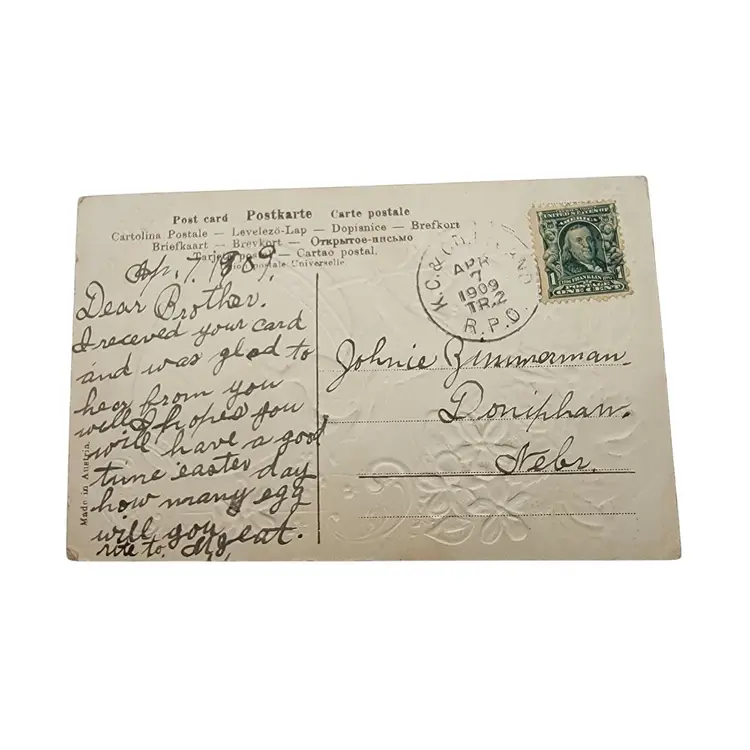 Post card Postkarte Carte postale
Cartolina Postale — Levelező-Lap — Dopisnice — Brefkort
Briefkaart — Brevkort — Открытое-письмо
Cartao postal.
postale Universelle
Ap. 7 1909.
Dear Brother.
I receved your card
and was glad to
hear from you
will I hopes you
will have a good
time easter day
how many egg
will you eat.
rite to
Made in Austria.
K.C. &
APR
7
1909
TR.2
R.P.O.
UNITED STATES OF
AMERICA
1 1
FRANKLIN
POSTAGE
ONE CENT
Johnie Zimmerman.
Doniphan.
Nebr.